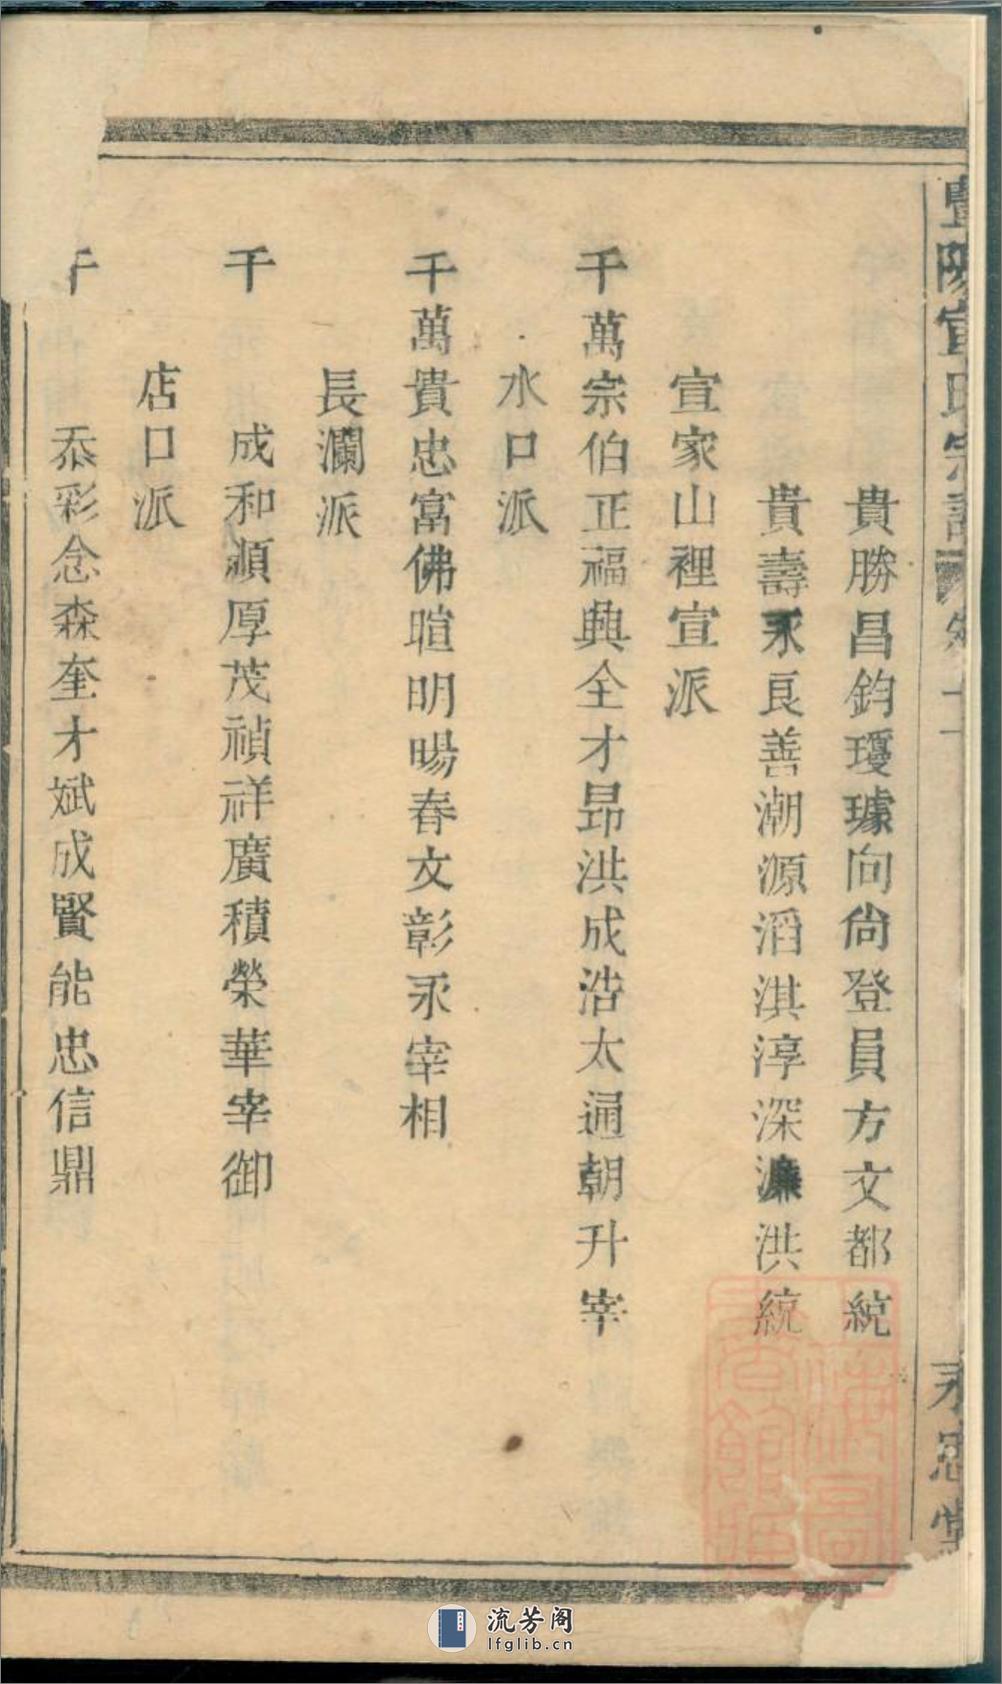 暨陽宣氏宗譜 卷十一 永思堂
貴勝昌鈞瓊璩向尙登員方文都統
貴壽永良善潮源滔淇淳深濂洪統
宣家山裡宣派
千萬宗伯正福興全才昂洪成浩太通朝升宰
水口派
千萬貴忠富佛暄明暘春文彰永宰相
長瀾派
千 成和順厚茂禎祥廣積榮華宰御
店口派
千 忝彩念森奎才斌成賢能忠信鼎
流芳阁
lfglib.cn